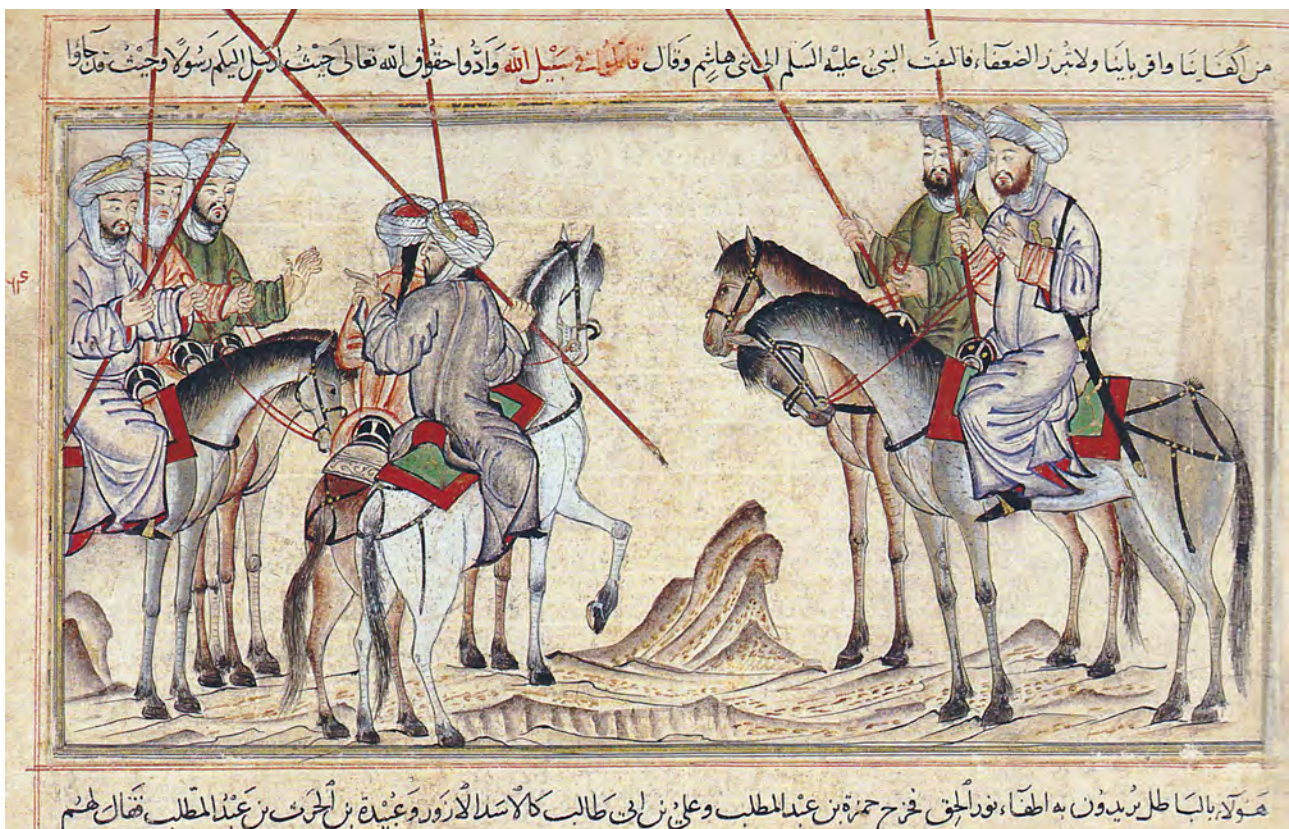 من اكفاينا واقرباينا ولا تبرز الضعفاء فالتفت النبي عليه السلم الى بني هاشم وقال قاتلوا في سبيل الله وَادُّوا حقوق الله تعالى حيث ارسل اليكم رسولًا وحيث قد جاؤا
هَولاء بالباطل يريدون به اطفاء نور الحق فخرج حمزة بن عبد المطلب وعلي بن ابي طالب كالاسد الازور وعبيدة بن الحرث بن عبد المطلب فقال لهم